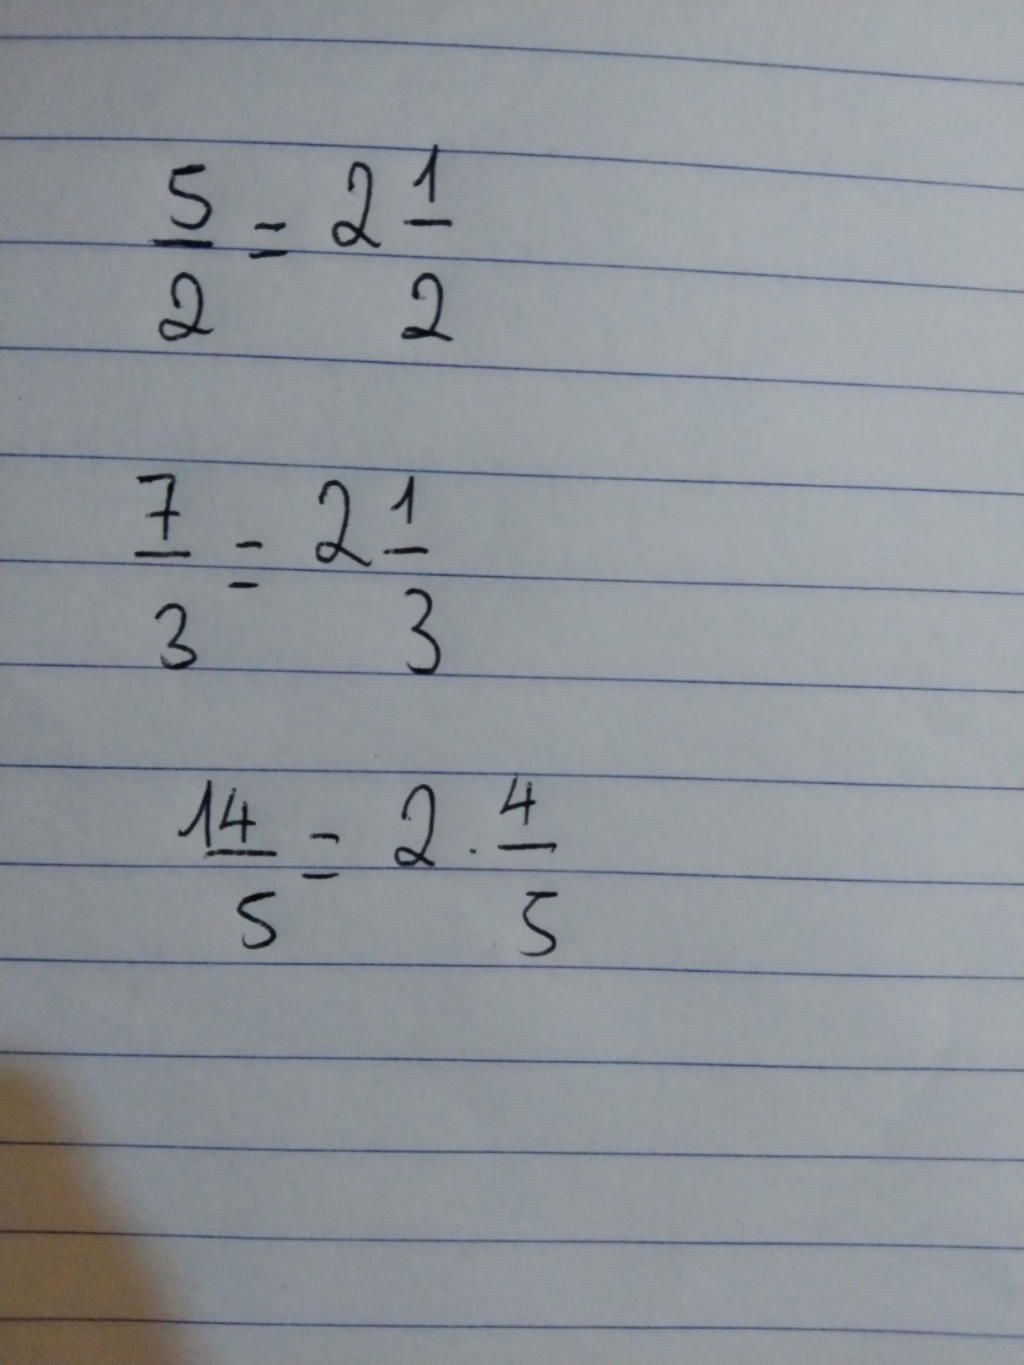 5/2 = 2 1/2
7/3 = 2 1/3
14/5 = 2 . 4/5